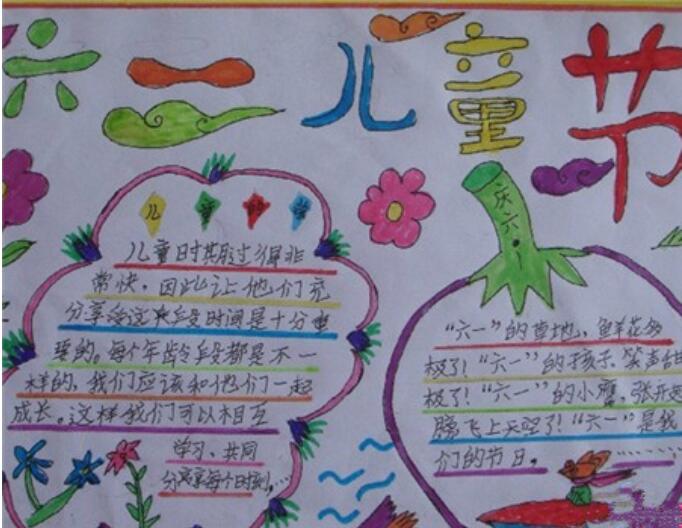 六一儿童节
儿童时期过得非
常快，因此让他们充
分享受这个阶段时间是十分重
要的。每个年龄段都是不一
样的，我们应该和他们一起
成长。这样我们可以相互
学习、共同
分享每个时刻……
庆六一
“六一”的草地，鲜花多
极了！“六一”的孩子、笑声甜
极了！“六一”的小鹰，张开翅
膀飞上天空了！“六一”是我
们的节日。…………